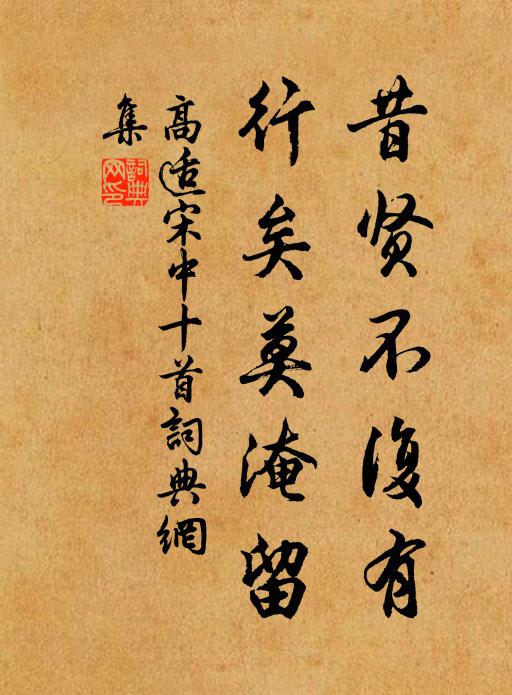 昔贤不復有
行矣莫淹留
高适宋中十首詞典網
集
詞典
网印